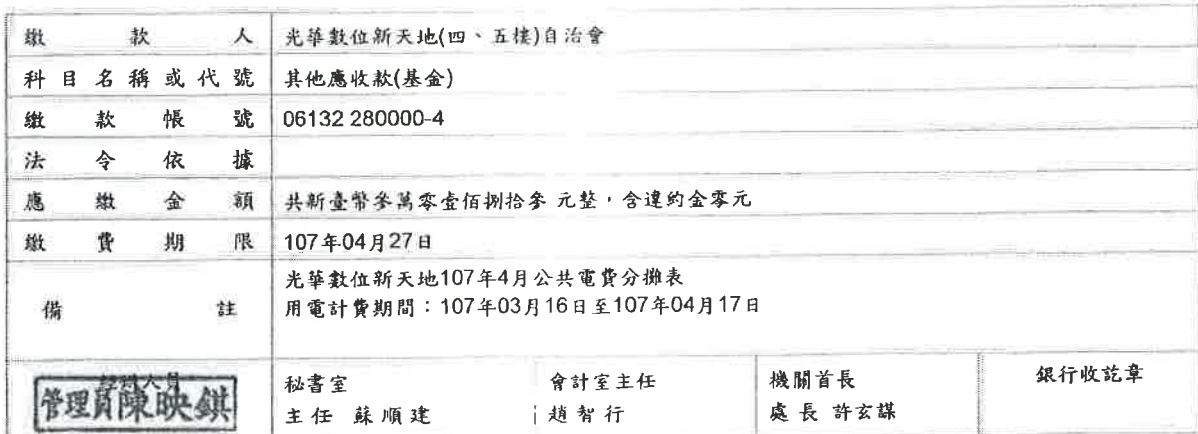 繳款人 光華數位新天地(四、五樓)自治會
科目名稱或代號 其他應收款(基金)
繳款帳號 06132 280000-4
法令依據
應繳金額 共新臺幣參萬零壹佰捌拾參 元整，含違約金零元
繳費期限 107年04月27日
備註 光華數位新天地107年4月公共電費分攤表
用電計費期間：107年03月16日至107年04月17日
管理員陳映錤
秘書室
主任 蘇順建
會計室主任
趙智行
機關首長
處長 許玄謀
銀行收訖章